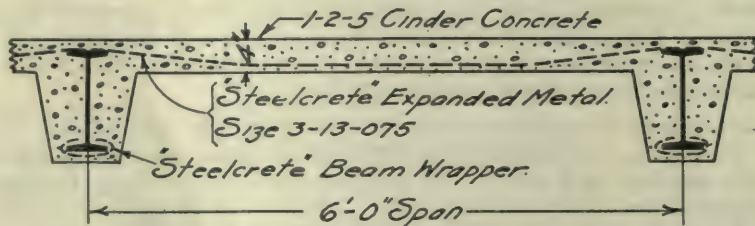 1-2-5 Cinder Concrete
"Steelcrete" Expanded Metal.
Size 3-13-075
"Steelcrete" Beam Wrapper.
6'-0" Span